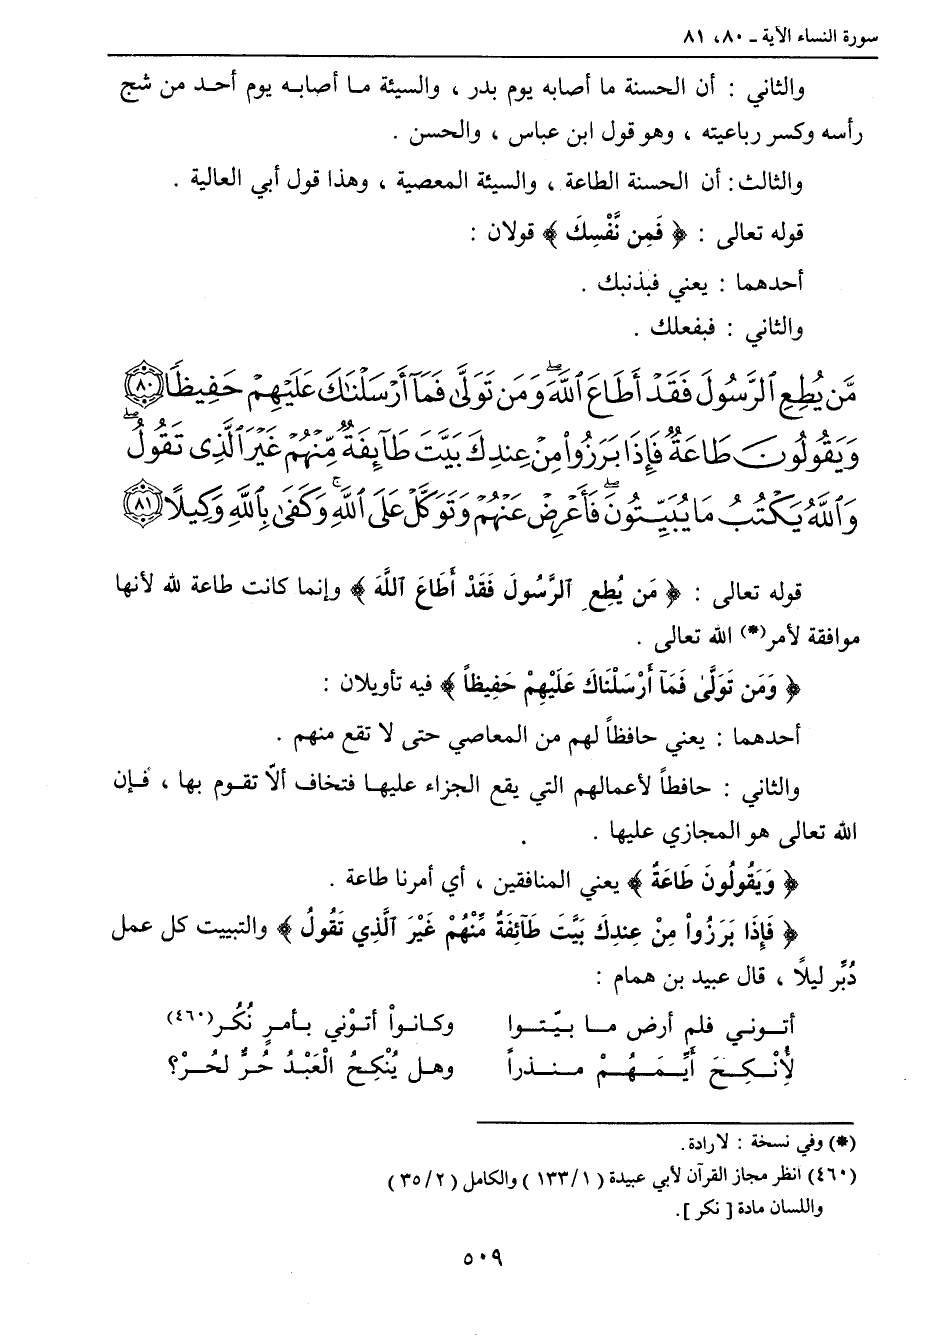 سورة النساء الآية ـ ٨٠، ٨١
والثاني : أن الحسنة ما أصابه يوم بدر ، والسيئة ما أصابه يوم أحد من شج
رأسه وكسر رباعيته ، وهو قول ابن عباس ، والحسن .
والثالث : أن الحسنة الطاعة ، والسيئة المعصية ، وهذا قول أبي العالية .
قوله تعالى : ﴿ فَمِن نَّفْسِكَ ﴾ قولان :
أحدهما : يعني فبذنبك .
والثاني : فبفعلك .
مَّن يُطِعِ ٱلرَّسُولَ فَقَدْ أَطَاعَ ٱللَّهَ ۖ وَمَن تَوَلَّىٰ فَمَآ أَرْسَلْنَٰكَ عَلَيْهِمْ حَفِيظًا ٨٠
وَيَقُولُونَ طَاعَةٌ فَإِذَا بَرَزُوا۟ مِنْ عِندِكَ بَيَّتَ طَآئِفَةٌ مِّنْهُمْ غَيْرَ ٱلَّذِى تَقُولُ ۖ
وَٱللَّهُ يَكْتُبُ مَا يُبَيِّتُونَ ۖ فَأَعْرِضْ عَنْهُمْ وَتَوَكَّلْ عَلَى ٱللَّهِ ۚ وَكَفَىٰ بِٱللَّهِ وَكِيلًا ٨١
قوله تعالى : ﴿ مَن يُطِعِ ٱلرَّسُولَ فَقَدْ أَطَاعَ اللَّهَ ﴾ وإنما كانت طاعة لله لأنها
موافقة لأمر(*) الله تعالى .
﴿ وَمَن تَوَلَّىٰ فَمَآ أَرْسَلْنَاكَ عَلَيْهِمْ حَفِيظاً ﴾ فيه تأويلان :
أحدهما : يعني حافظاً لهم من المعاصي حتى لا تقع منهم .
والثاني : حافطاً لأعمالهم التي يقع الجزاء عليها فتخاف ألاّ تقوم بها ، فإن
الله تعالى هو المجازي عليها .
﴿ وَيَقُولُونَ طَاعَةٌ ﴾ يعني المنافقين ، أي أمرنا طاعة .
﴿ فَإِذَا بَرَزُواْ مِنْ عِندِكَ بَيَّتَ طَآئِفَةٌ مِّنْهُمْ غَيْرَ ٱلَّذِي تَقُولُ ﴾ والتبييت كل عمل
دُبِّر ليلًا ، قال عبيد بن همام :
أتوني فلم أرض ما بيّتوا وكانواْ أتوْني بأمرٍ نُكُر(٤٦٠)
لُأنْكِحَ أَيِّمَهُمْ منذراً وهل يُنْكِحُ الْعَبْدُ حُرٌّ لحُرْ؟
(*) وفي نسخة : لارادة .
(٤٦٠) انظر مجاز القرآن لأبي عبيدة ( ١٣٣/١ ) والكامل ( ٣٥/٢ )
واللسان مادة [ نكر ] .
٥٠٩